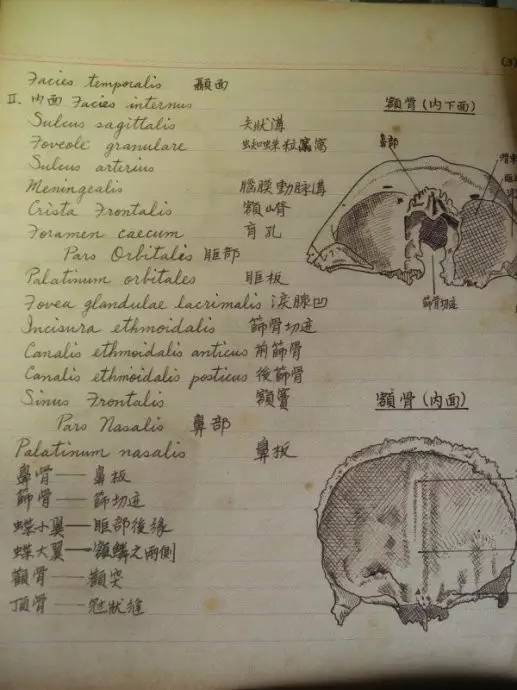 (3)
Facies temporalis 顳面
II. 內面 Facies internus
Sulcus sagittalis 矢狀溝
Foveolé granulare 蜘蛛粒窩
Sulcus arterius
Meningealis 腦膜動脈溝
Crista Frontalis 額嵴
Foramen caecum 盲孔
Pars Orbitalis 眶部
Palatinum orbitales 眶板
Fovea glandulae lacrimalis 淚腺凹
Incisura ethmoidalis 篩骨切迹
Canalis ethmoidalis anticus 前篩骨
Canalis ethmoidalis posticus 後篩骨
Sinus Frontalis 額竇
Pars Nasalis 鼻部
Palatinum nasalis 鼻板
鼻骨——鼻板
篩骨——篩切迹
蝶小翼——眶部後緣
蝶大翼——額鱗之兩側
顴骨——顴突
頂骨——冠狀縫
額骨(內下面)
鼻部
篩骨切迹
額骨(內面)